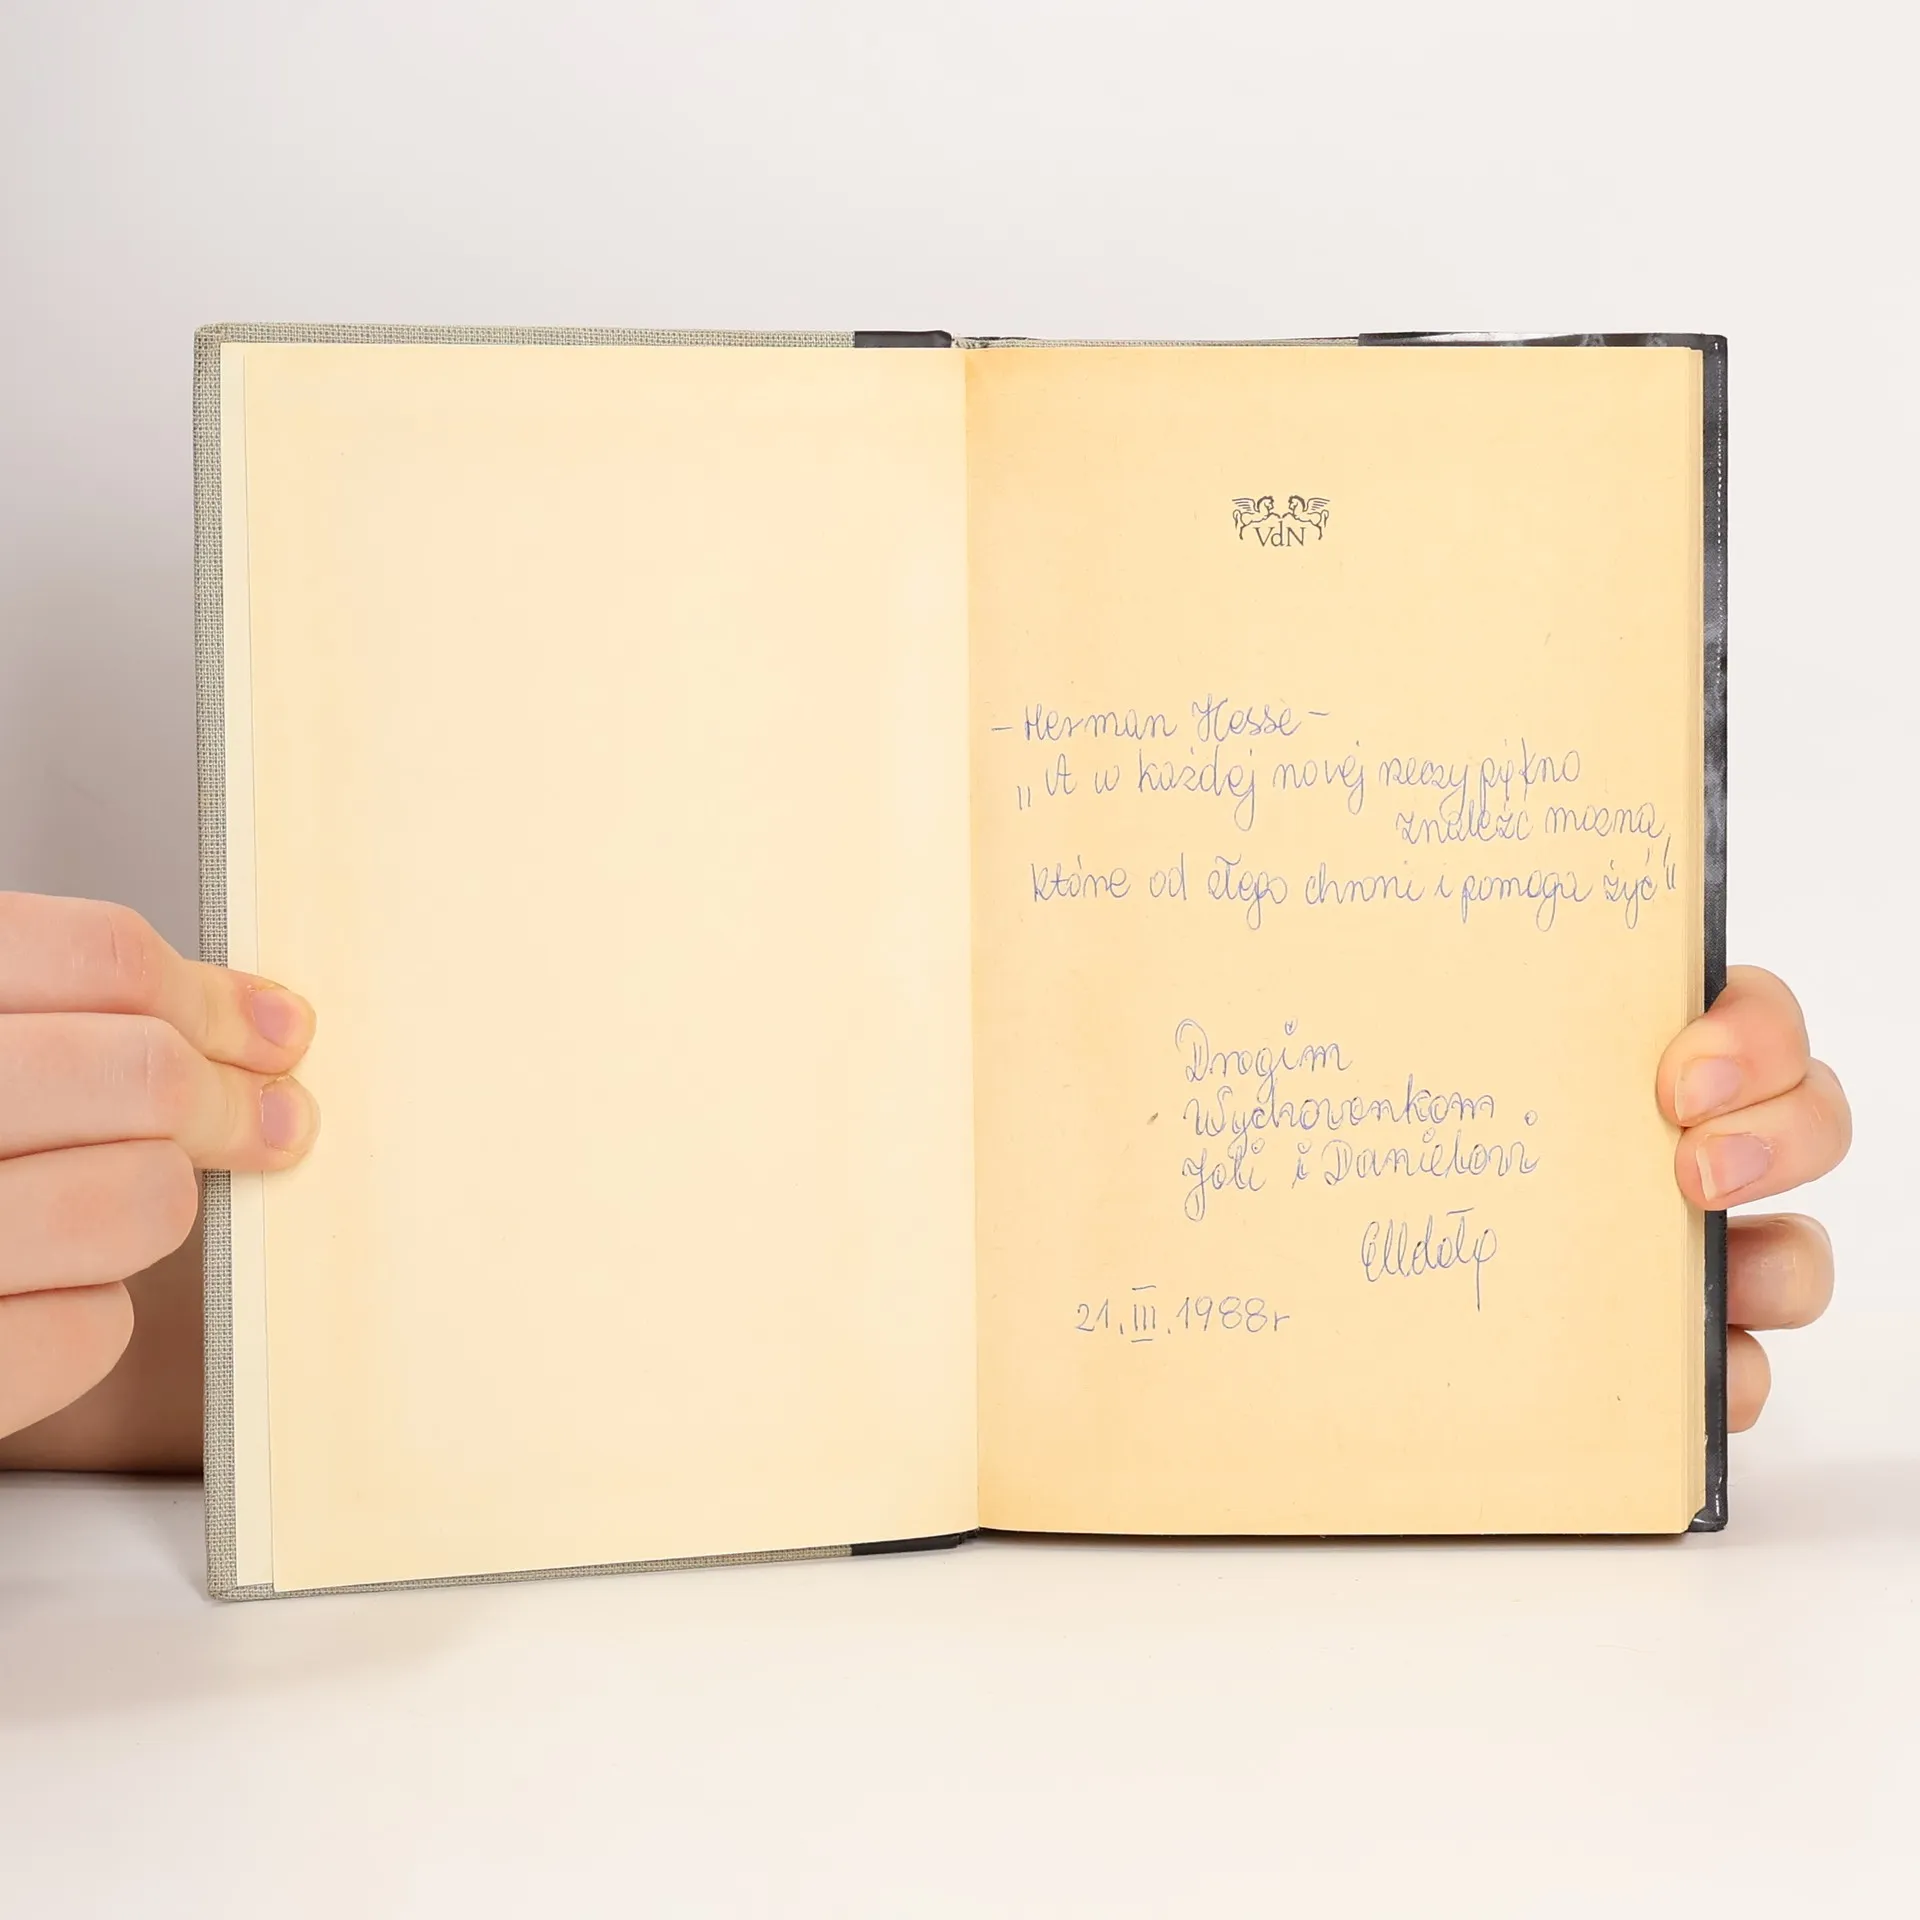 VdN
- Herman Hesse -
„A w każdej novej rzeczy piękno
znaleźć można,
które od złego chroni i pomaga żyć"
Drogim
Wychowankom
Joli i Danielowi
21.III.1988r